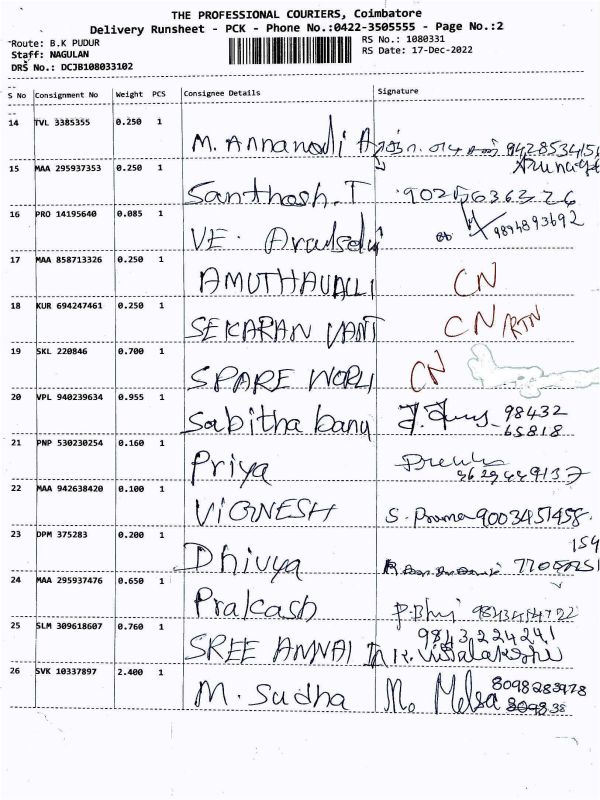 THE PROFESSIONAL COURIERS, Coimbatore
Delivery Runsheet - PCK - Phone No.:0422-3505555 - Page No.:2
Route: B.K PUDUR
RS No.: 1080331
Staff: NAGULAN
RS Date: 17-Dec-2022
DRS No.: DCJB108033102
S No Consignment No Weight PCS Consignee Details Signature
14 TVL 3385355 0.250 1
M. Annanadi
15 MAA 295937353 0.250 1
Santhosh. T
16 PRO 14195640 0.085 1
VE. 9894893692
17 MAA 858713326 0.250 1
AMUTHAVALLI CN
18 KUR 694247461 0.250 1
SEKARAN VANT CN/RTN
19 SKL 220846 0.700 1
SPARE WORLI CN
20 VPL 940239634 0.955 1
Sabitha banu 98432
65818
21 PNP 530230254 0.160 1
Priya
22 MAA 942638420 0.100 1
VIGNESH S. Prema 9003451458
23 DPM 375283 0.200 1
Dhivya
24 MAA 295937476 0.650 1
Prakash
25 SLM 309618607 0.760 1
9843224241
SREE ANNAI K. Visalakshi
26 SVK 10337897 2.400 1
M. Sudha